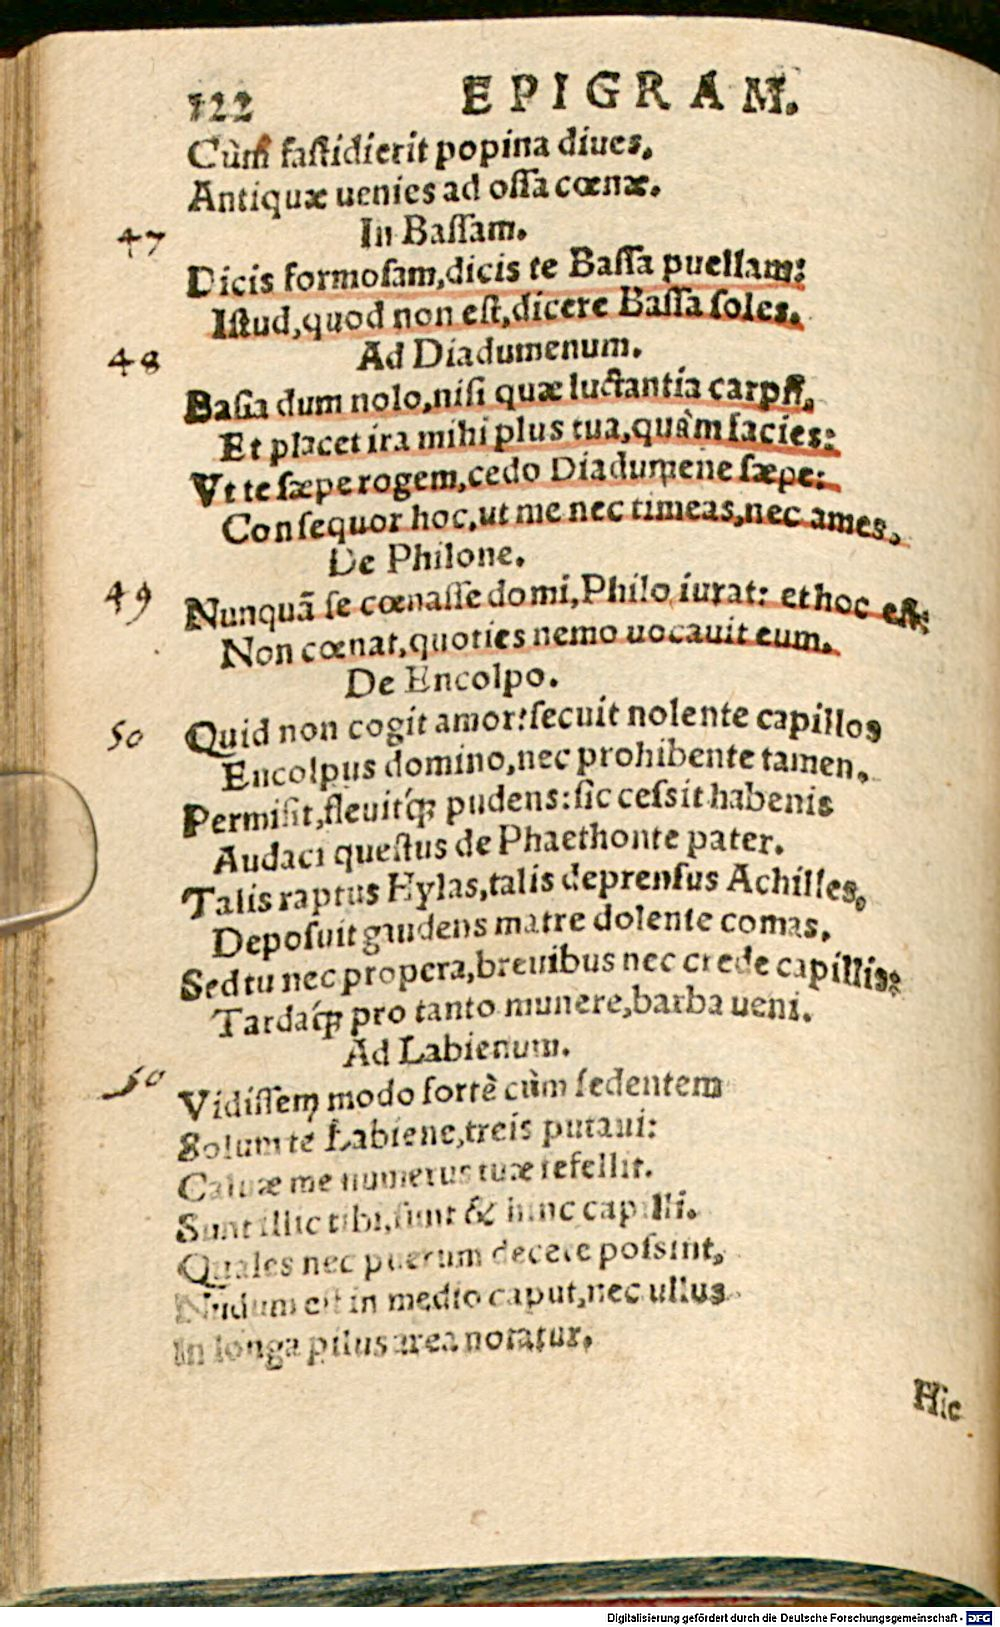 122 EPIGRAM.
Cùm faſtidierit popina diues,
Antiquæ uenies ad oſſa cœnæ.
47 In Baſſam.
Dicis formoſam, dicis te Baſſa puellam:
Iſtud, quod non eſt, dicere Baſſa ſoles.
48 Ad Diadumenum.
Baſia dum nolo, niſi quæ luctantia carpſi,
Et placet ira mihi plus tua, quàm facies:
Vt te ſæpe rogem, cedo Diadumene ſæpe:
Conſequor hoc, ut me nec timeas, nec ames.
De Philone.
49 Nunquã ſe cœnaſſe domi, Philo iurat: et hoc eſt:
Non cœnat, quoties nemo uocauit eum.
De Encolpo.
50 Quid non cogit amor? ſecuit nolente capillos
Encolpus domino, nec prohibente tamen.
Permiſit, fleuitq́; pudens: ſic ceſsit habenis
Audaci queſtus de Phaethonte pater.
Talis raptus Hylas, talis deprenſus Achilles,
Depoſuit gaudens matre dolente comas.
Sed tu nec propera, breuibus nec crede capillis:
Tardaq́; pro tanto munere, barba ueni.
Ad Labienum.
50 Vidiſſem modo fortè cùm ſedentem
Solum te Labiene, treis putaui:
Caluæ me numerus tuæ fefellit.
Sunt illic tibi, ſunt & hinc capilli.
Quales nec puerum decere poſsint,
Nudum eſt in medio caput, nec ullus
In longa pilus area notatur.
Hic
Digitalisierung gefördert durch die Deutsche Forschungsgemeinschaft - DFG